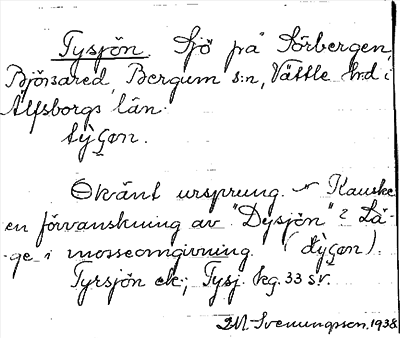 Tysjön. Sjö på Sörbergen,
Björsared, Bergum s:n, Vättle hrd i
Älfsborgs län.
tỳçen.
Okänt ursprung. Kanske
en förvanskning av "Dysjön"? Lä-
ge i mosseomgivning. (dỳçen).
Tyrsjön ek.; Tysj. kg. 33 s.v.
M. Svenungsson. 1938.